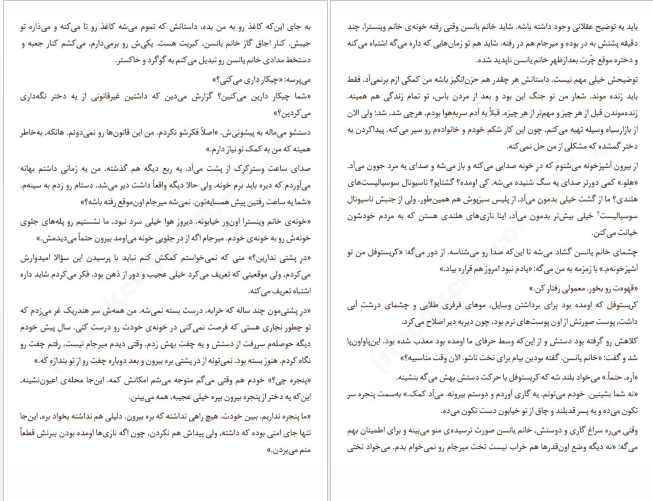 باید یه توضیح عقلانی وجود داشته باشه. شاید خانم یانسن وقتی رفته خونه‌ی خانم وینسترا، چند
دقیقه پشتش به در بوده و میرجام هم در رفته. شاید هم تو زمان‌هایی که داره می‌گه اشتباه می‌کنه
و دختره موقع چُرت بعدازظهر خانم یانسن ناپدید شده.
توضیحش خیلی مهم نیست. داستانش هر چقدر هم حزن‌انگیز باشه من کمکی ازم برنمی‌آد. فقط
باید زنده موند. شعار من تو جنگ این بود و بعد از مردن باس، تو تمام زندگی هم همینه.
زنده‌موندن قبل از هر چیز و مهم‌تر از هر چیزه. قبلاً یه آدم سربه‌هوا بودم، هرچی شد، شد؛ ولی الان
از بازارسیاه وسیله تهیه می‌کنم، چون این کار شکم خودم و خانواده‌م رو سیر می‌کنه. پیداکردن یه
دختر گمشده که مشکلی از من حل نمی‌کنه.
از بیرون آشپزخونه می‌شنوم که در خونه صدایی می‌کنه و باز می‌شه و صدای یه مرد جوون می‌آد.
«هلو.» کمی دورتر صدای یه سگ شنیده می‌شه. کی اومده؟ گشتاپو؟ ناسیونال سوسیالیست‌های
هلندی؟ ما از گشت خیلی بدمون می‌آد، از پلیس سبزپوش هم همین‌طور، ولی از جنبش ناسیونال
سوسیالیست خیلی بیش‌تر بدمون می‌آد، اینا نازی‌های هلندی هستن که به مردم خودشون
خیانت می‌کنن.
چشمای خانم یانسن گشاد می‌شه تا این‌که صدا رو می‌شناسه. از دور می‌گه: «کریستوفل من تو
آشپزخونه‌م.» با زمزمه به من می‌گه: «یادم نبود امروز هم قراره بیاد.»
«قهوه‌ت رو بخور. معمولی رفتار کن.»
کریستوفل که اومده بود برای برداشتن وسایل، موهای فرفری طلایی و چشمای درشت آبی
داشت، پوست صورتش از اون پوست‌های نرم بود، چون دیربه‌دیر اصلاح می‌کرد.
کلاهش رو گرفته بود دستش و از این‌که وسط حرفای ما اومده بود معذب شده بود. این‌پاواون‌پا
شد و گفت: «خانم یانسن. گفته بودین بیام برای تخت تاشو. الان وقت مناسبیه؟»
«آره، حتماً.» می‌خواد بلند شه که کریستوفل با حرکت دستش بهش می‌گه بنشینه.
«نه شما بشینین. خودم می‌تونم. یه گاری آوردم و دوستم بیرونه. می‌آد کمک.» به‌سمت پنجره سر
تکون می‌ده و یه پسر قدبلند و چاق از تو خیابون دست تکون می‌ده.
وقتی می‌ره سراغ گاری و دوستش، خانم یانسن صورت ترسیده‌ی منو می‌بینه و برای اطمینان بهم
می‌گه: «نه دیگه وضع اون‌قدرها هم خراب نیست تخت میرجام رو نمی‌خوام بدم. می‌خواد تختی
به جای این‌که کاغذ رو به من بده، داستانش که تموم می‌شه کاغذ رو تا می‌کنه و می‌ذاره تو
جیبش. کنار اجاق گاز خانم یانسن، کبریت هست. یکی‌ش رو برمی‌دارم، می‌کشم کنار جعبه و
دستخط مدادی خانم یانسن رو تبدیل می‌کنم به گوگرد و خاکستر.
می‌پرسه: «چیکار داری می‌کنی؟»
«شما چیکار دارین می‌کنین؟ گزارش می‌دین که داشتین غیرقانونی از یه دختر نگه‌داری
می‌کردین؟»
دستشو می‌ماله به پیشونی‌ش. «اصلاً فکرشو نکردم. من این قانون‌ها رو نمی‌دونم. هانکه، به‌خاطر
همینه که من به کمک تو نیاز دارم.»
صدای ساعت وسترکرک از پشت می‌آد. یه ربع دیگه هم گذشته. من یه زمانی داشتم بهانه
می‌آوردم که دیره باید برم خونه، ولی حالا دیگه واقعاً داشت دیر می‌شد. دستام رو زدم به سینه‌م.
«شما یه ساعت رفتین پیش همسایه‌تون. نمی‌شه میرجام اون‌موقع رفته باشه؟»
«خونه‌ی خانم وینسترا اون‌ور خیابونه. دیروز هوا خیلی سرد نبود، ما نشستیم رو پله‌های جلوی
خونه‌ش رو به خونه‌ی خودم. میرجام اگه از در جلویی خونه می‌اومد بیرون حتماً می‌دیدمش.»
«در پشتی ندارین؟» منی که نمی‌خواستم کمکش کنم نباید با پرسیدن این سؤالا امیدوارش
می‌کردم، ولی موقعیتی که تعریف می‌کرد خیلی عجیب و دور از ذهن بود. فکر می‌کردم شاید داره
اشتباه تعریف می‌کنه.
«در پشتی‌مون چند ساله که خرابه، درست بسته نمی‌شه. من همه‌ش سر هندریک غر می‌زدم که
تو چطور نجاری هستی که فرصت نمی‌کنی در خونه‌ی خودت رو درست کنی. سال پیش خودم
دیگه حوصله‌م سررفت از دستش و یه چفت بهش زدم. وقتی دیدم میرجام نیست، رفتم چفت رو
نگاه کردم. هنوز بسته بود. نمی‌تونه از در پشتی بره بیرون و بعد دوباره چفت رو از تو بندازه که.»
«پنجره چی؟» خودم هم وقتی می‌گم متوجه می‌شم امکانش کمه. این‌جا محله‌ی اعیون‌نشینه،
این‌که یه دختر از پنجره بیرون بیره خیلی عجیبه، همه می‌بینن.
«ما پنجره نداریم. ببین خودت. هیچ راهی نداشته که بره بیرون. دلیلی هم نداشته بخواد بره، این‌جا
تنها جای امنی بوده که داشته، ولی پیداش هم نکردن، چون اگه نازی‌ها اومده بودن ببرنش قطعاً
منم می‌بردن.»